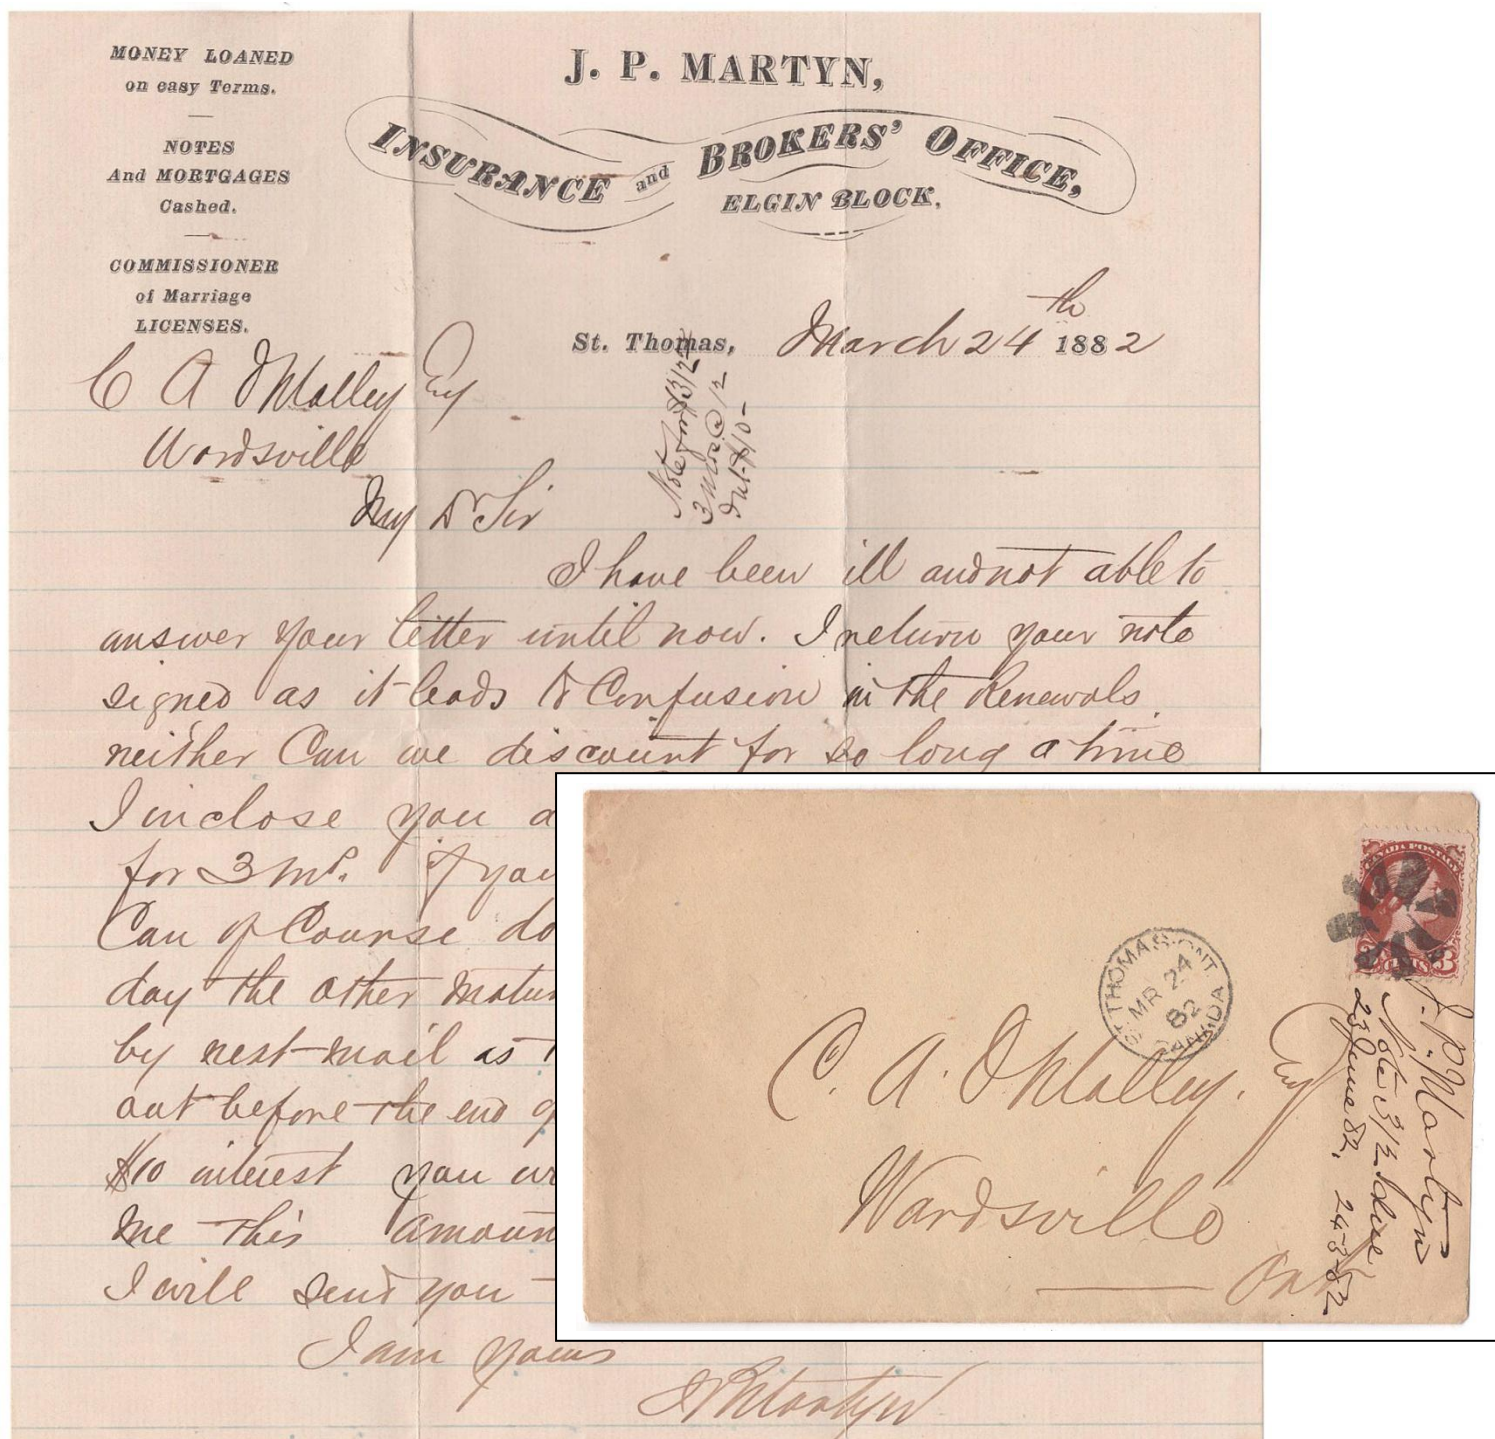 MONEY LOANED
on easy Terms.
NOTES
And MORTGAGES
Cashed.
COMMISSIONER
of Marriage
LICENSES.
J. P. MARTYN,
INSURANCE and BROKERS' OFFICE,
ELGIN BLOCK.
St. Thomas, March 24th 1882
C A O'Malley Esq
Wardsville
Note for $312
3 mos @ 12
Int $10-
My Dr Sir
I have been ill and not able to
answer your letter until now. I return your note
signed as it leads to Confusion in the Renewals
neither Can we discount for so long a time
I inclose you a
for 3 ms. If you
Can of Course do
day the other matur
by next mail as
out before the end of
$10 interest you
me this amoun
I will send you -
I am yours
J P Martyn
CANADA POSTAGE
3 CENTS 3
ST THOMAS·ONT
MR 24
82
CANADA
C. A. O'Malley. Esq
Wardsville
Ont
J. P. Martyn
Note 312 due
23 June 82. 24-3-82